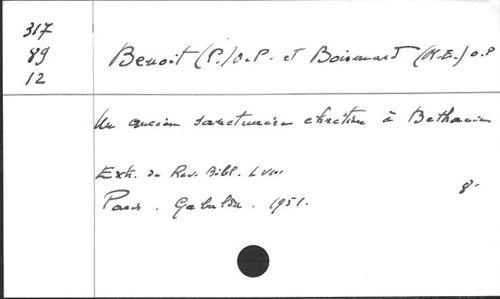 317
89
12
Benoit (P.) O.P. et Boismard (M.E.) O.P
Un ancien sanctuaire chrétien à Béthanie
Extr. de Rev. Bibl. LVIII
Paris. Gabalda. 1951.
8-